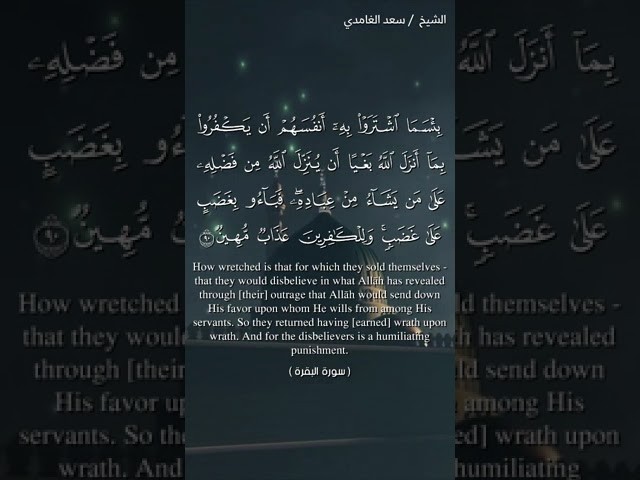 الشيخ / سعد الغامدي
بِئْسَمَا ٱشْتَرَوْا۟ بِهِۦٓ أَنفُسَهُمْ أَن يَكْفُرُوا۟
بِمَآ أَنزَلَ ٱللَّهُ بَغْيًا أَن يُنَزِّلَ ٱللَّهُ مِن فَضْلِهِۦ
عَلَىٰ مَن يَشَآءُ مِنْ عِبَادِهِۦ ۖ فَبَآءُو بِغَضَبٍ
عَلَىٰ غَضَبٍ ۚ وَلِلْكَـٰفِرِينَ عَذَابٌ مُّهِينٌ ٩٠
How wretched is that for which they sold themselves -
that they would disbelieve in what Allāh has revealed
through [their] outrage that Allāh would send down
His favor upon whom He wills from among His
servants. So they returned having [earned] wrath upon
wrath. And for the disbelievers is a humiliating
punishment.
( سورة البقرة )